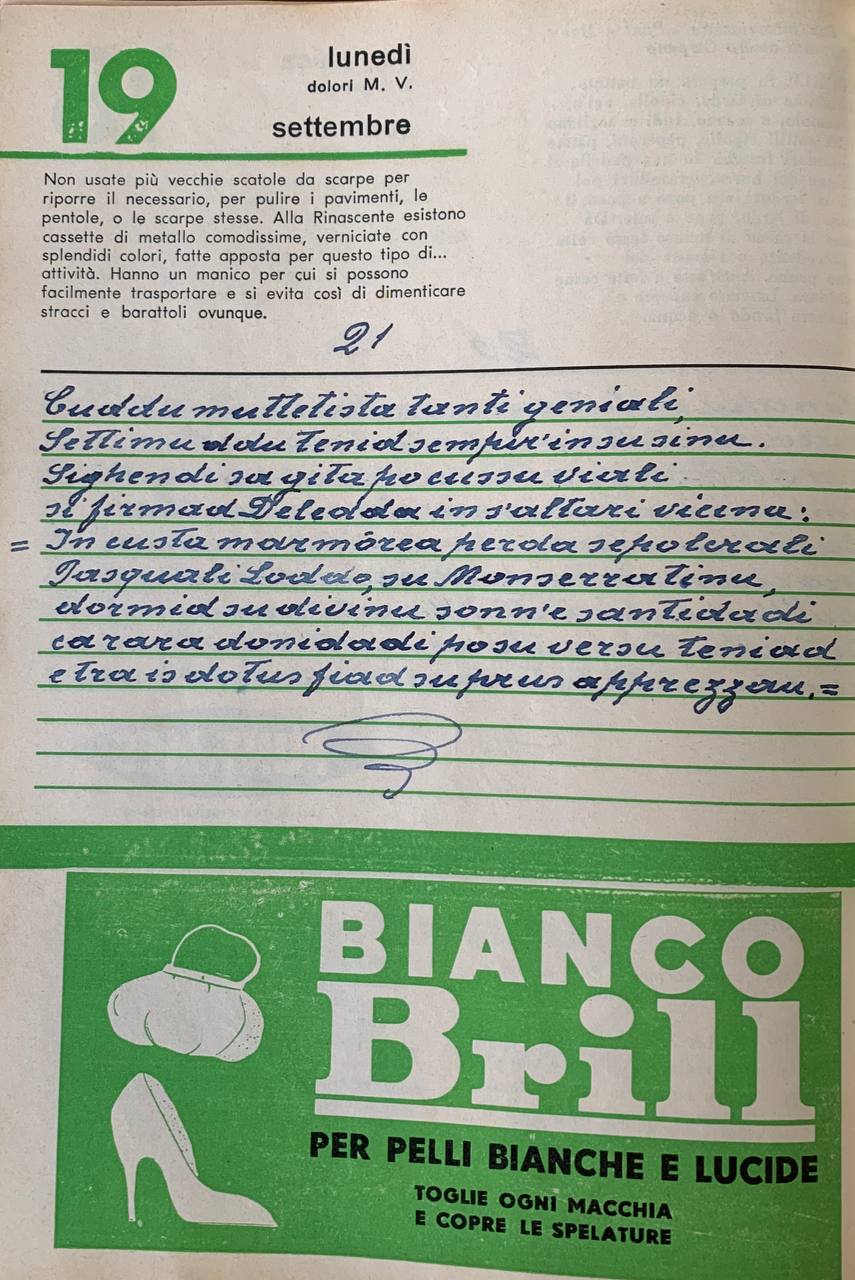 19
lunedì
dolori M. V.
settembre
Non usate più vecchie scatole da scarpe per
riporre il necessario, per pulire i pavimenti, le
pentole, o le scarpe stesse. Alla Rinascente esistono
cassette di metallo comodissime, verniciate con
splendidi colori, fatte apposta per questo tipo di...
attività. Hanno un manico per cui si possono
facilmente trasportare e si evita così di dimenticare
stracci e barattoli ovunque.
21
Cuddu muttetista tanti geniali,
Settimu ddu tenid sempir'in su sinu.
Sighendi sa gita po cussu viali
si firmad Deledda in s'altari vicinu:
= In custa marmòrea perda sepolcrali
Pasquali Loddo, su Monserratinu,
dormid su divinu sonn'e santidadi
ca rara donidadi po su versu teniad
e tra is dotus fiad su prus apprezzau. =
BIANCO
Brill
PER PELLI BIANCHE E LUCIDE
TOGLIE OGNI MACCHIA
E COPRE LE SPELATURE